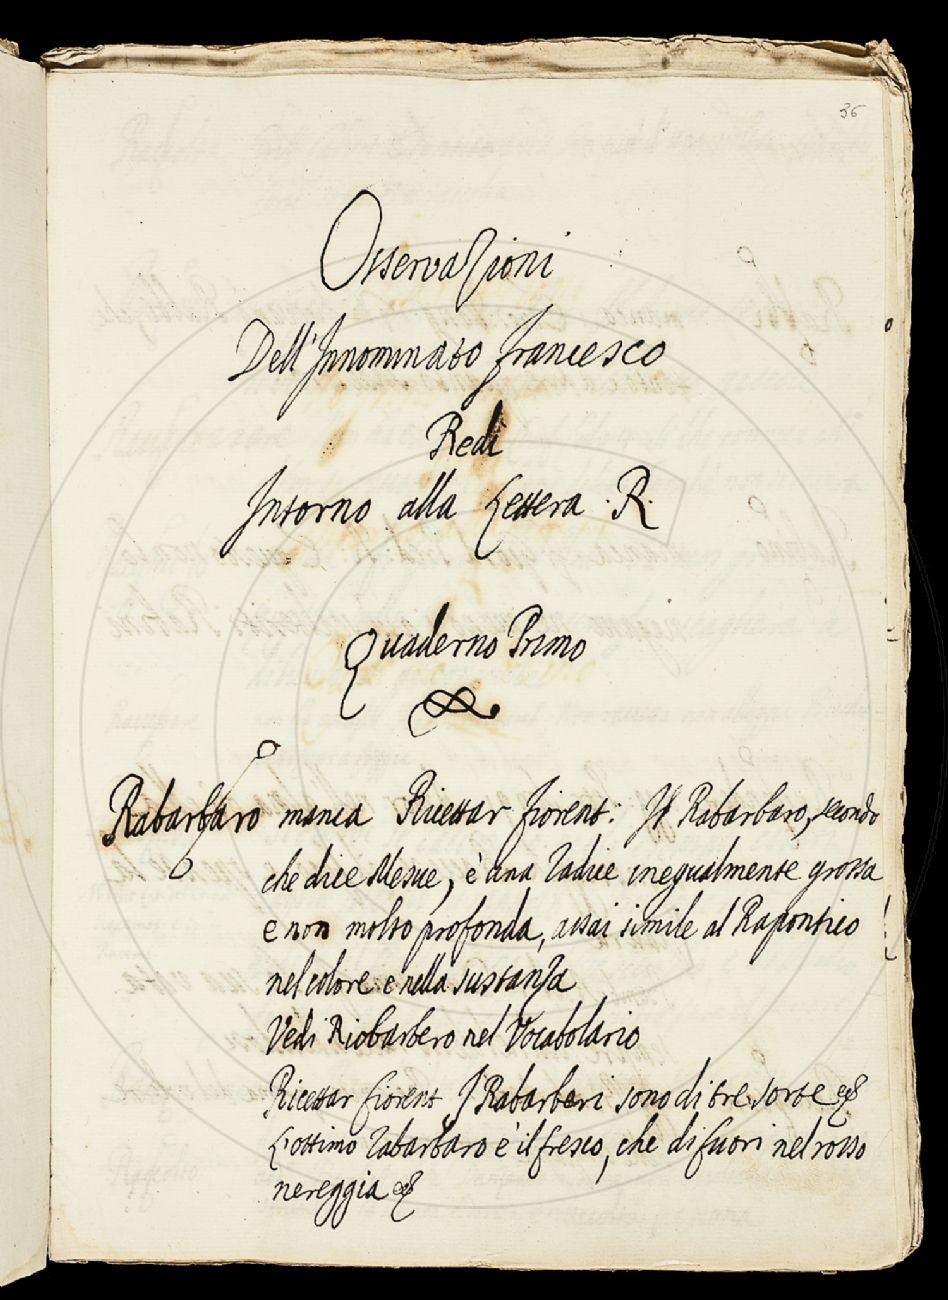 36
Osservazioni
Dell'Innominato Francesco
Redi
Intorno alla Lettera .R.
Quaderno Primo
Rabarbaro manca Ricettar fiorent: Il Rabarbaro, secondo
che dice Mesue, è una radice inegualmente grossa
e non molto profonda, assai simile al Rapontico
nel colore e nella sustanza
Vedi Riobarbero nel Vocabolario
Ricettar fiorent I Rabarberi sono di tre sorte &
L'ottimo rabarbaro è il fresco, che di fuori nel rosso
nereggia &